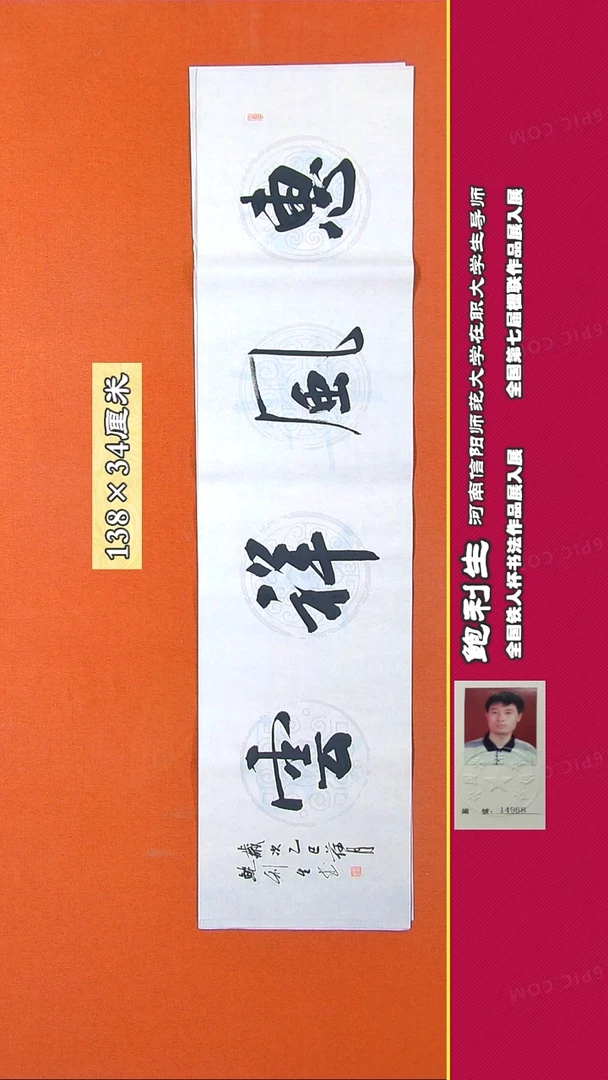 138×34厘米
惠風祥雲
歲次乙巳 月
鮑利生书
鲍利生 河南信阳师范大学在职大学生导师
全国铁人杯书法作品展入展 全国第七届楹联作品展入展
号: 14968
6PIC.COM